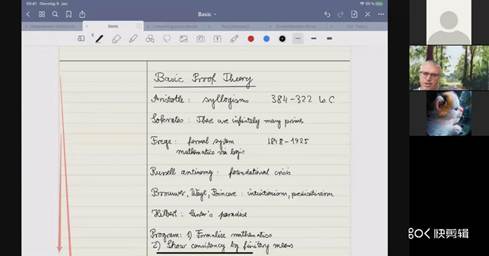 Basic
Basic
Basic Proof Theory
Aristotle: syllogisms 384-322 b.C
Sokrates: There are infinitely many primes
Frege: formal system 1848-1925
mathematics via logic
Russell antinomy: foundational crisis
Brouwer, Weyl, Poincare: intuitionism, predicativism
Hilbert: Cantor's paradise
Program: 1) Formalize mathematics
2) Show consistency by finitary means
快剪辑